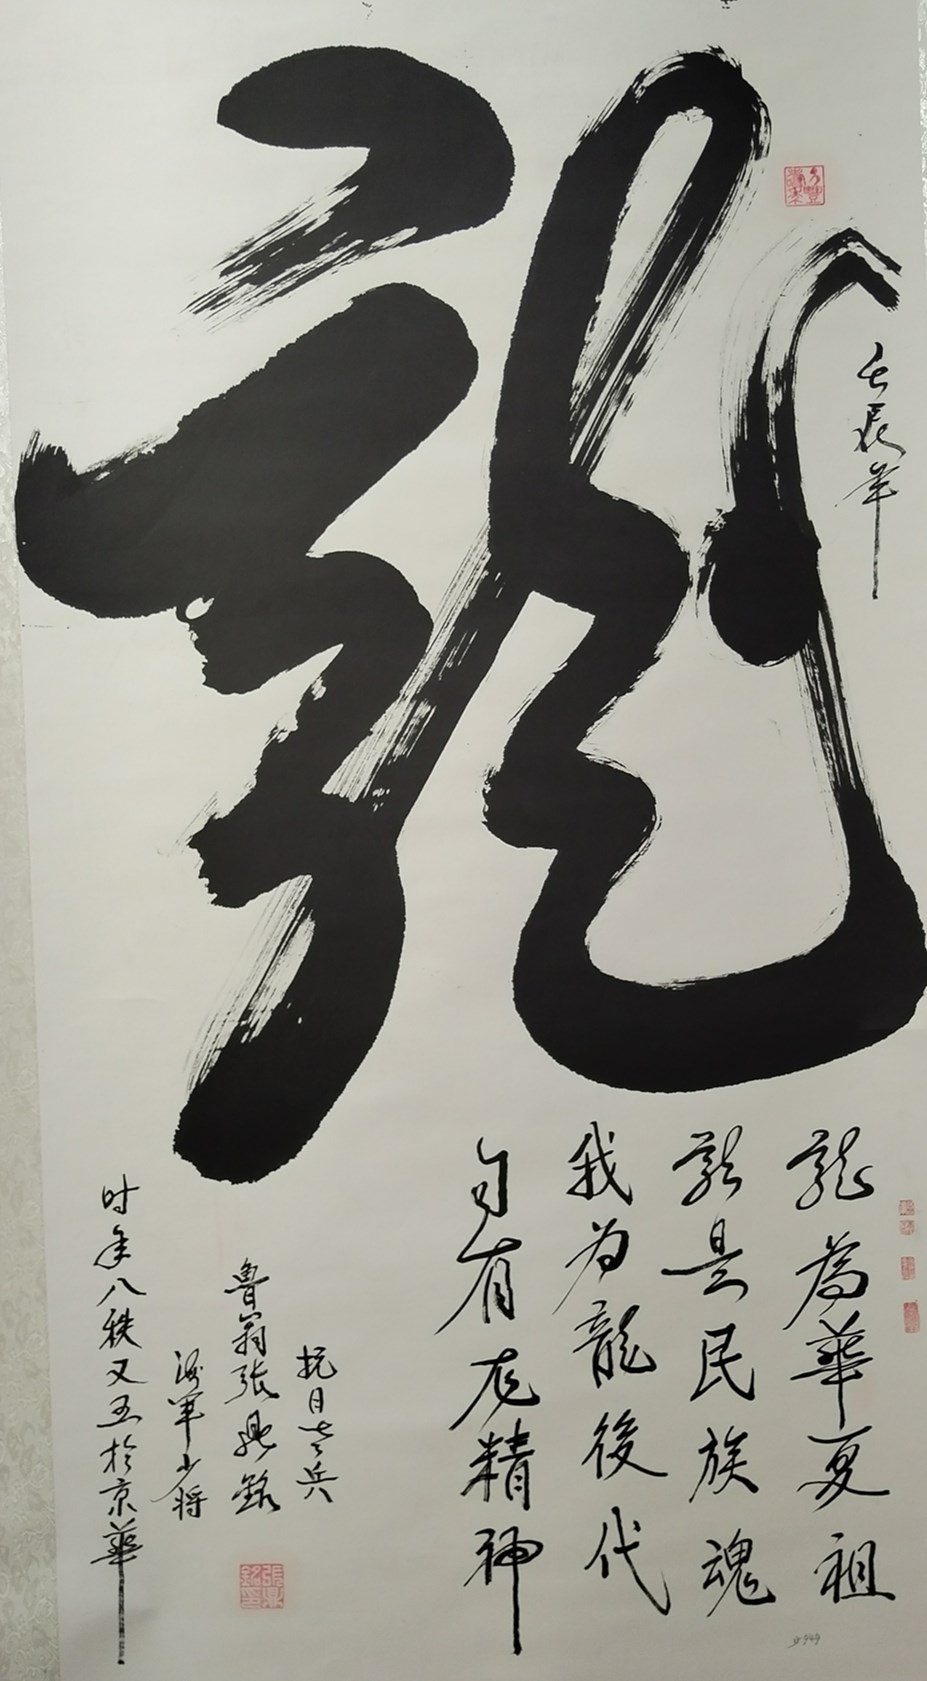 龍
壬辰年
龍為華夏祖
龍是民族魂
我为龍後代
自有龙精神
抗日老兵
魯翁張鼎銘
海軍少将
时年八秩又五於京華
張鼎銘印